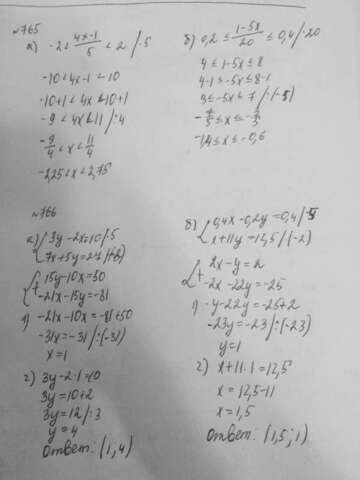 №765
а) -2 < (4x-1)/5 < 2 / ·5
-10 < 4x-1 < 10
-10+1 < 4x < 10+1
-9 < 4x < 11 / :4
-9/4 < x < 11/4
-2,25 < x < 2,75
б) 0,2 ≤ (1-5x)/20 ≤ 0,4 / ·20
4 ≤ 1-5x ≤ 8
4-1 ≤ -5x ≤ 8-1
3 ≤ -5x ≤ 7 / :(-5)
-7/5 ≤ x ≤ -3/5
-1,4 ≤ x ≤ -0,6
№766
а) { 3y-2x=10 / ·5
7x+5y=27 / ·(-3)
{+ 15y-10x=50
-21x-15y=-81
1) -21x-10x=-81+50
-31x=-31 / :(-31)
x=1
2) 3y-2·1=10
3y=10+2
3y=12 / :3
y=4
Ответ: (1; 4)
б) { 0,4x-0,2y=0,4 / ·5
x+11y=12,5 / ·(-2)
{+ 2x-y=2
-2x-22y=-25
1) -y-22y=-25+2
-23y=-23 / :(-23)
y=1
2) x+11·1=12,5
x=12,5-11
x=1,5
Ответ: (1,5; 1)